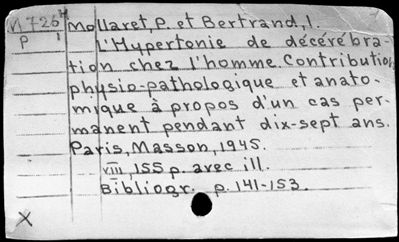 M 7264 Mollaret, P. et Bertrand, I.
P 1 l'Hypertonie de décérébra-
tion chez l'homme. Contribution
physio-pathologique et anato-
mique à propos d'un cas per-
manent pendant dix-sept ans.
Paris, Masson, 1945.
VIII, 155 p. avec ill.
Bibliogr. p. 141-153.
X